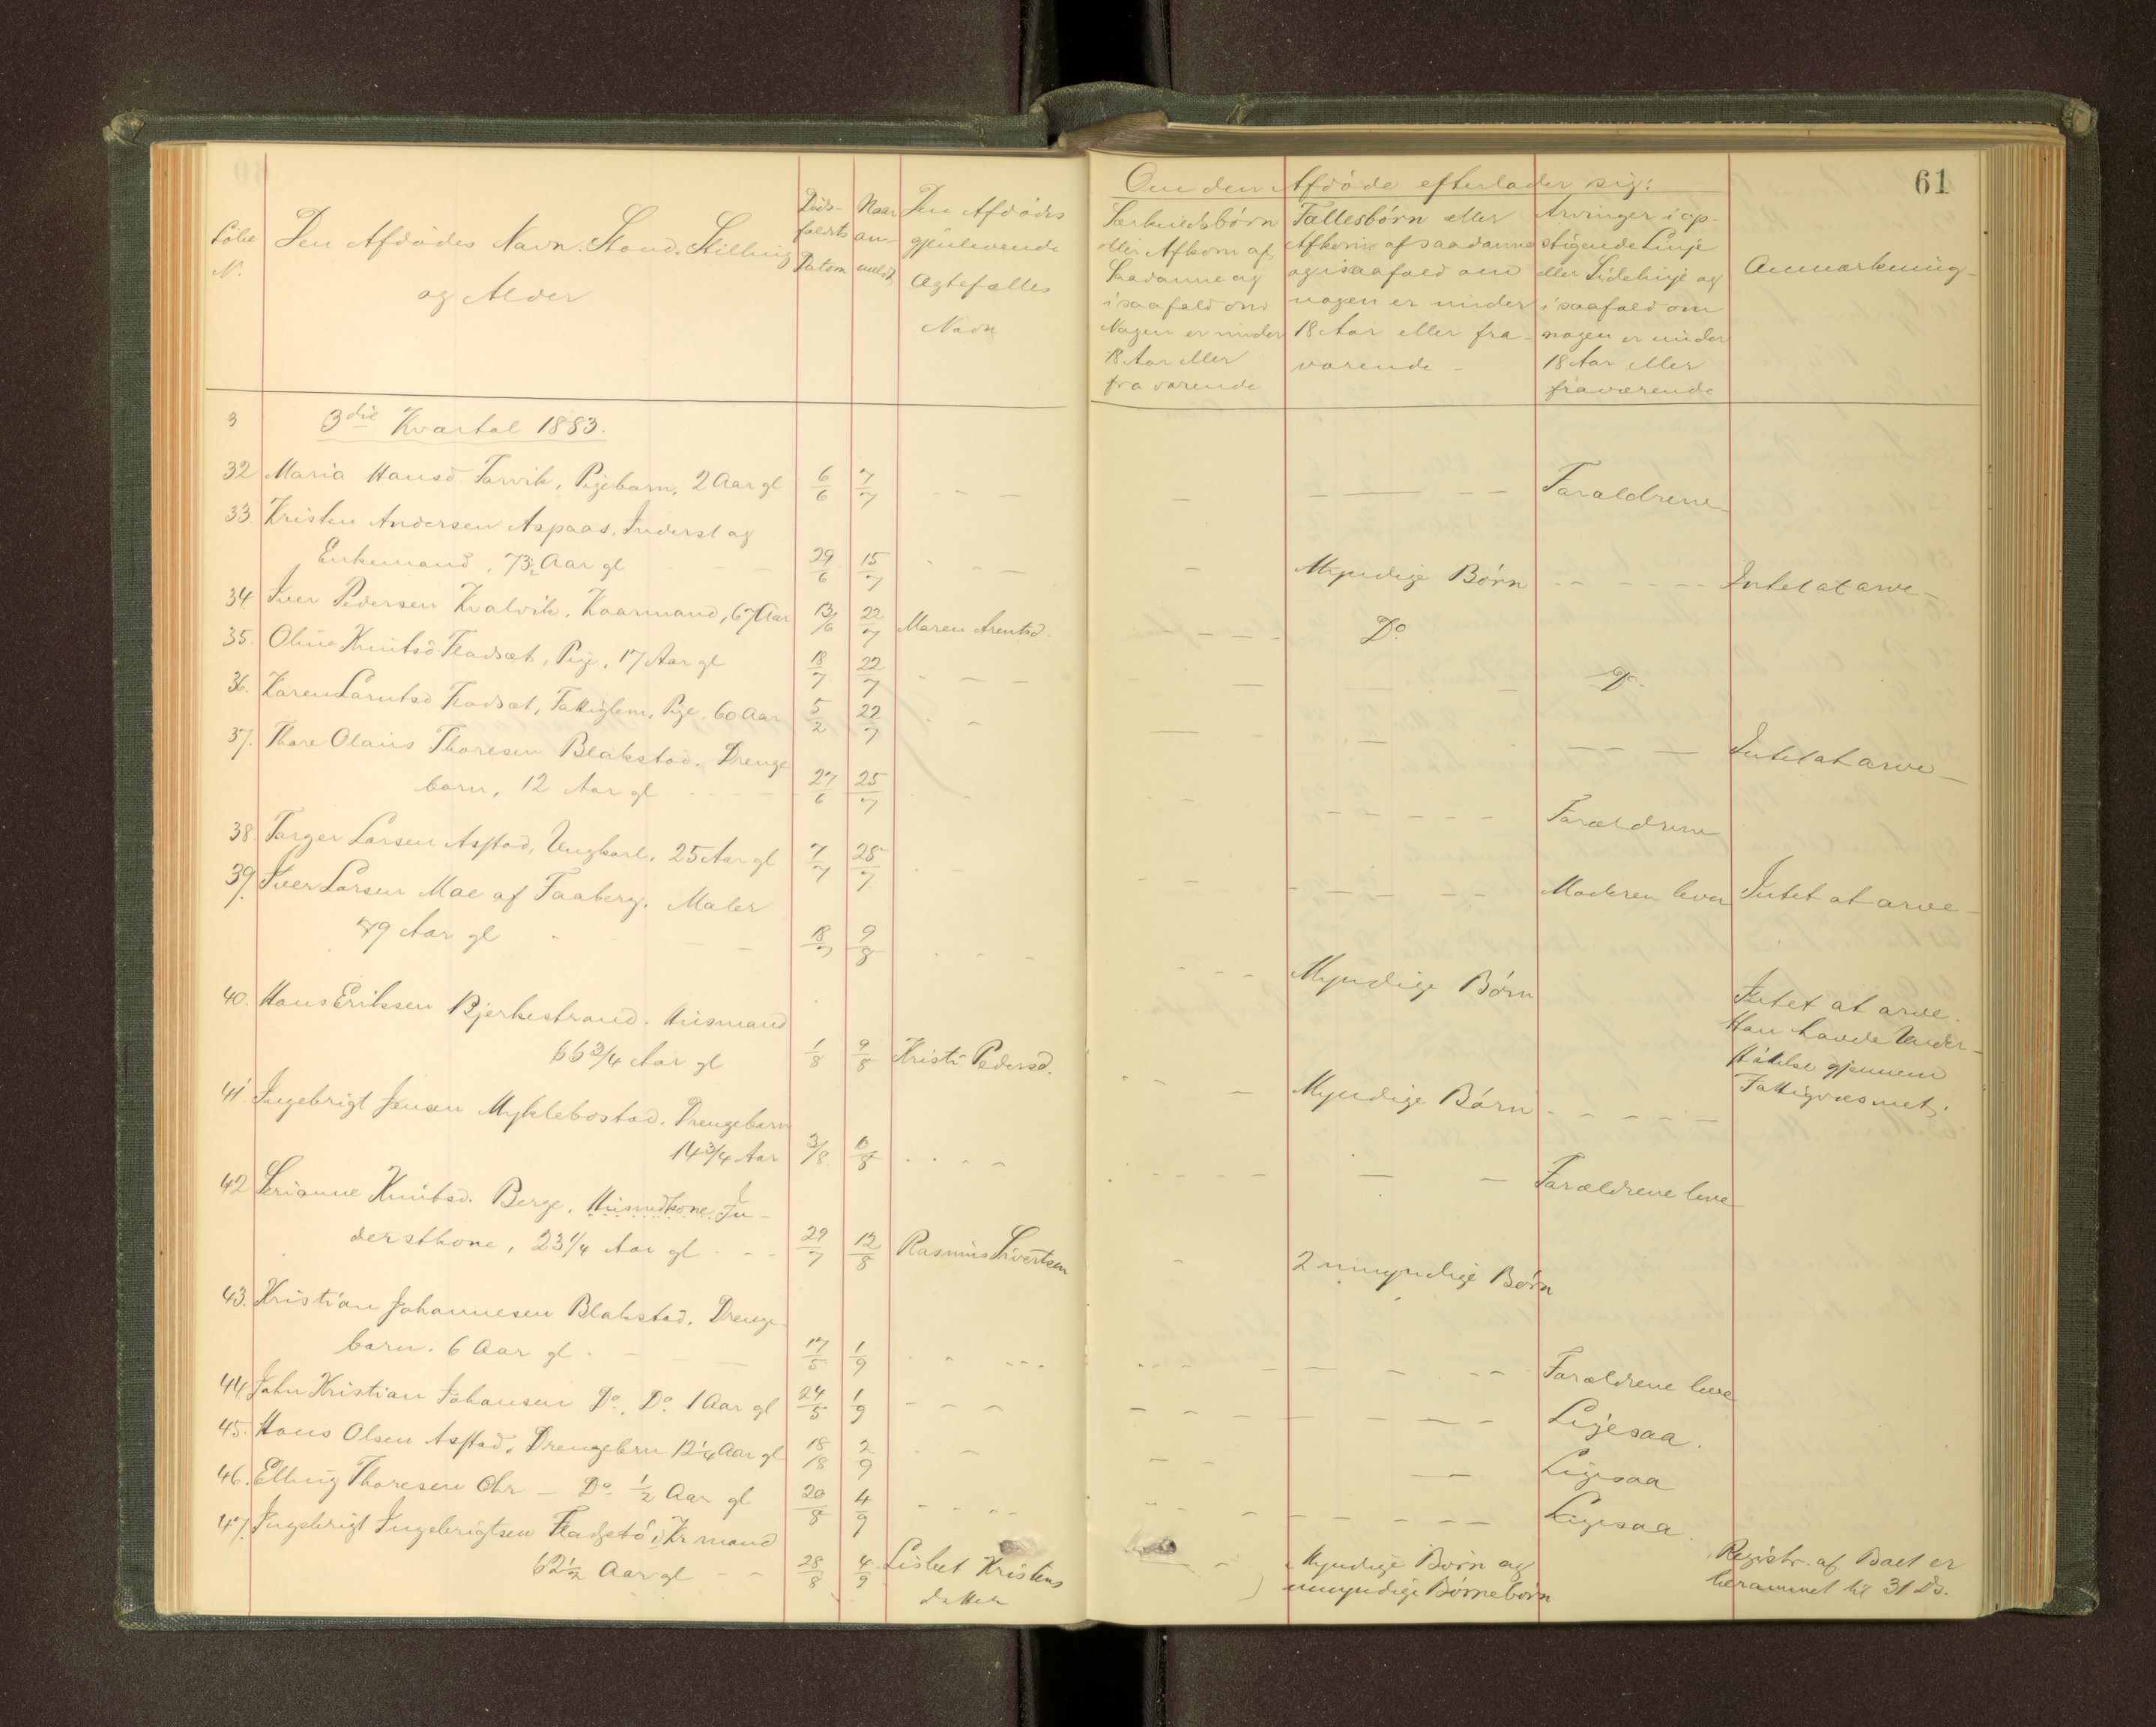 61
Løbe N.
Den Afdødes Navn. Stand. Stilling
og Alder
Døds-
faldets
Datum
Naar
an-
meldt
Den Afdødes
gjenlevende
Ægtefælles
Navn
Om den Afdøde efterlader sig:
Særkuldsbørn
eller Afkom af
Saadanne og
i saafald om
Nogen er under
18 Aar eller
fraværende
Fællesbørn eller
Afkom af saadanne
og i saafald om
nogen er under
18 Aar eller fra-
værende -
Arvinger i op-
stigende Linje
eller Sidelinje og
i saafald om
nogen er under
18 Aar eller
fraværende
Anmærkning-
3 3die Kvartal 1883.
32 Maria Hansd. Tarvik, Pigebarn, 2 Aar gl 6/6 7/7 Forældrene
33. Kristen Andersen Aspaas, Inderst og
Enkemand, 73½ Aar gl 29/6 15/7 Myndige Børn Intet at arve-
34 Iver Pedersen Kvalvik, Kaarmand, 67 Aar 13/6 22/7 Maren Arentsd. Do
35. Oline Knutsd. Fladsæt, Pige, 17 Aar gl 18/7 22/7
36. Karen Larsd Fladsæt, Fattiglem, Pige, 60 Aar 5/2 22/7 Intet at arve-
37. Thore Olaus Thoresen Blakstad. Drenge
barn, 12 Aar gl 27/6 25/7 Forældrene
38. Torger Larsen Astad, Ungkarl, 25 Aar gl 7/7 28/7 Moderen lever Intet at arve-
39. Iver Larsen Moe af Faaberg. Maler
79 Aar gl 18/7 9/8 Myndige Børn Intet at arve.
40. Hans Eriksen Bjerkestrand. Husmand
66 3/4 Aar gl 1/8 9/8 Kristi Pedersd. Myndige Børn Han havde Under-
støttelse gjennem
Fattigvæsnet.
41 Ingebrigt Jensen Myklebostad. Drengebarn
14 3/4 Aar 3/8 Forældrene leve
42 Serianne Knutsd. Berge, Husmdkone In-
derstkone, 23 1/4 Aar gl 29/7 12/8 Rasmus Sivertsen 2 umyndige Børn
43. Kristian Johannesen Blakstad, Drenge-
barn. 6 Aar gl 17/5 1/9 Forældrene leve
44. John Kristian Johansen Do. Do. 1 Aar gl 24/5 1/9 Ligesaa.
45. Hans Olsen Astad. Drengebrn 12 1/4 Aar gl 18/8 2/9 Ligesaa
46. Elling Thoresen Ohr - Do ½ Aar gl 20/8 4/9 Ligesaa.
47. Ingebrigt Ingebrigtsen Kr mand
62½ Aar gl 28/8 4/9 Lisbet Kristens Myndige Børn og Registr. af Boet er
datter umyndige Børnebørn berammet til 31 Ds.